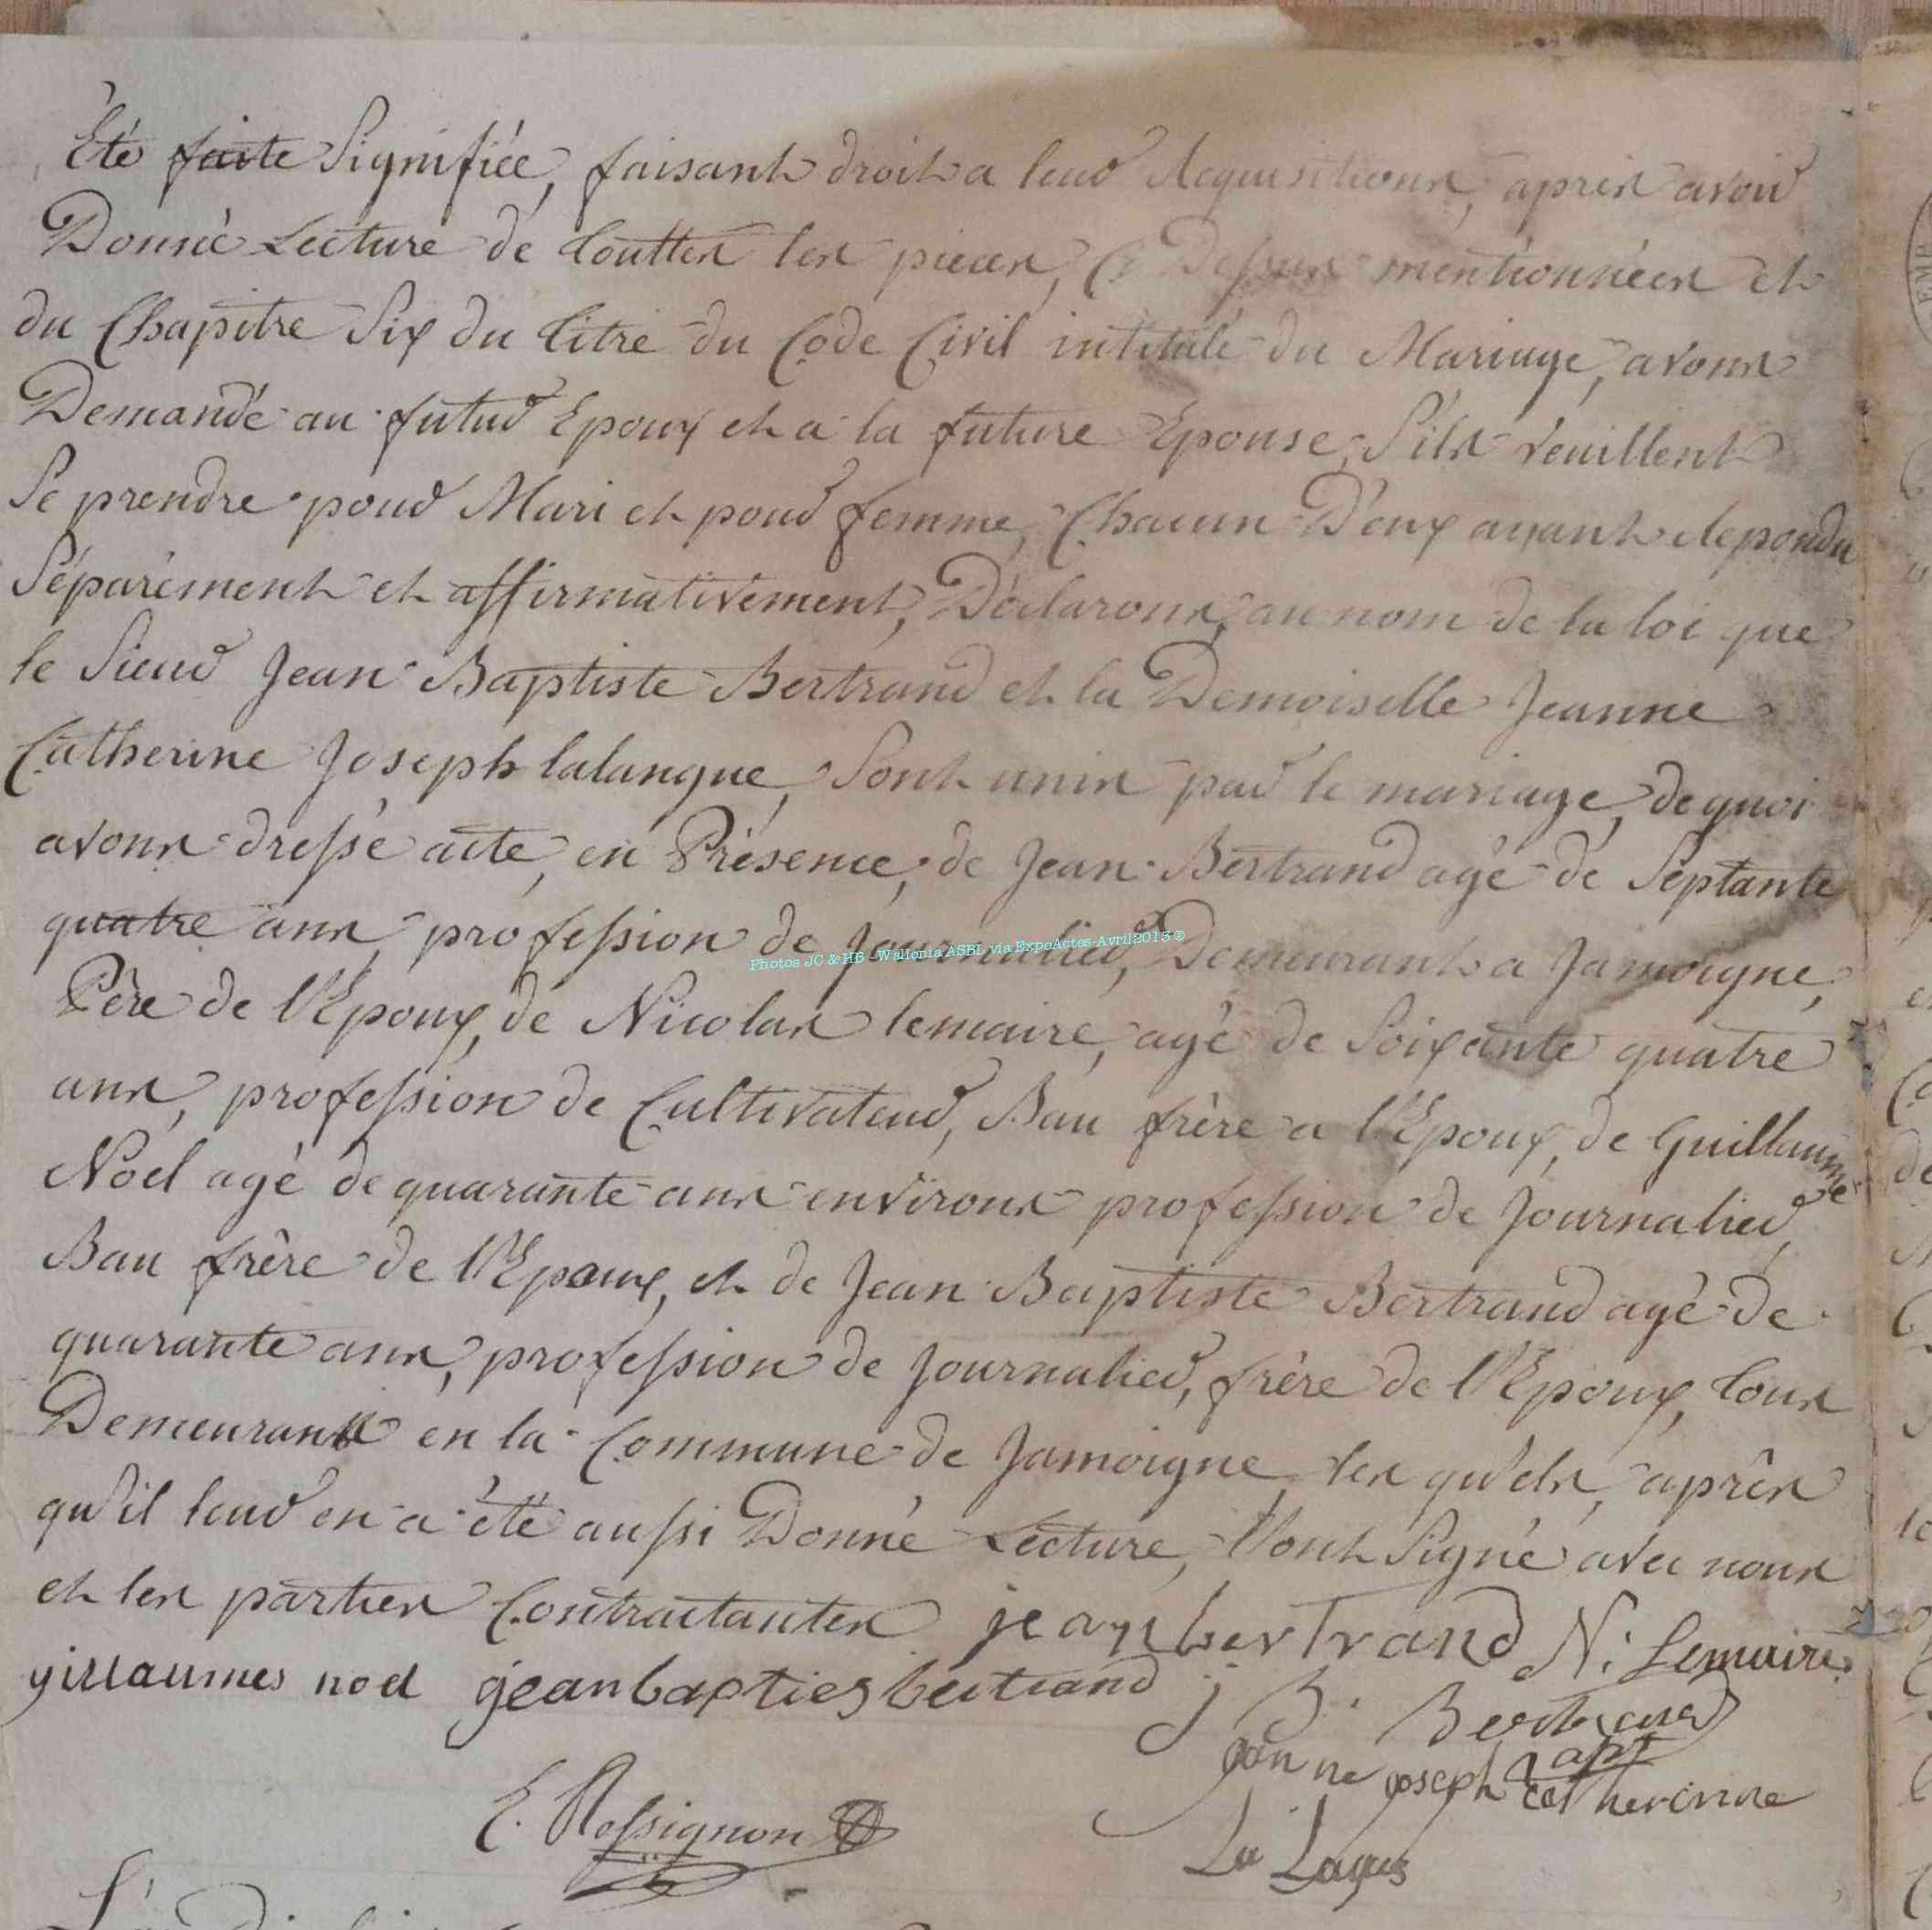 Été faite Signifiée, faisant droit a leur Requisitions, après avoir
Donné Lecture de touttes les pieces, Ci Dessus mentionnées et
du Chapitre Six du titre du Code Civil intitulé du Mariage, avons
Demandé au futur Epoux et a la future Epouse, S'ils veuillent
Se prendre pour Mari et pour femme, Chacun D'eux ayant Repondu
Séparément et affirmativement, Déclarons, au nom de la loi que
le Sieur Jean Baptiste Bertrand et la Demoiselle Jeanne
Catherine Joseph lalangue, Sont unis par le mariage, de quoi
avons dressé acte, en Présence, de Jean Bertrand agé de Septante
quatre ans, profession de Journalier, Demeurant a Jamoigne,
Photos JC & HB -Wallonia ASBL via ExpoActes-Avril2013®
Père de l'Epoux, de Nicolas lemaire, agé de Soixante quatre
ans, profession de Cultivateur, Bau frère a l'Epoux, de Guillaume
Noel agé de quarante ans environs profession de Journalier,
Bau frère de l'Epoux, et de Jean Baptiste Bertrand agé de
quarante ans, profession de Journalier, frère de l'Epoux, tous
Demeurant en la Commune de Jamoigne les qu'els, après
qu'il leur en a été aussi Donné Lecture, l'ont Signé avec nous
et les parties Contractantes jean bertrand N: Lemaire
gillaumes noel jean bapties bertrand j B. Bertrand
joseph catherinne
E. Rossignon